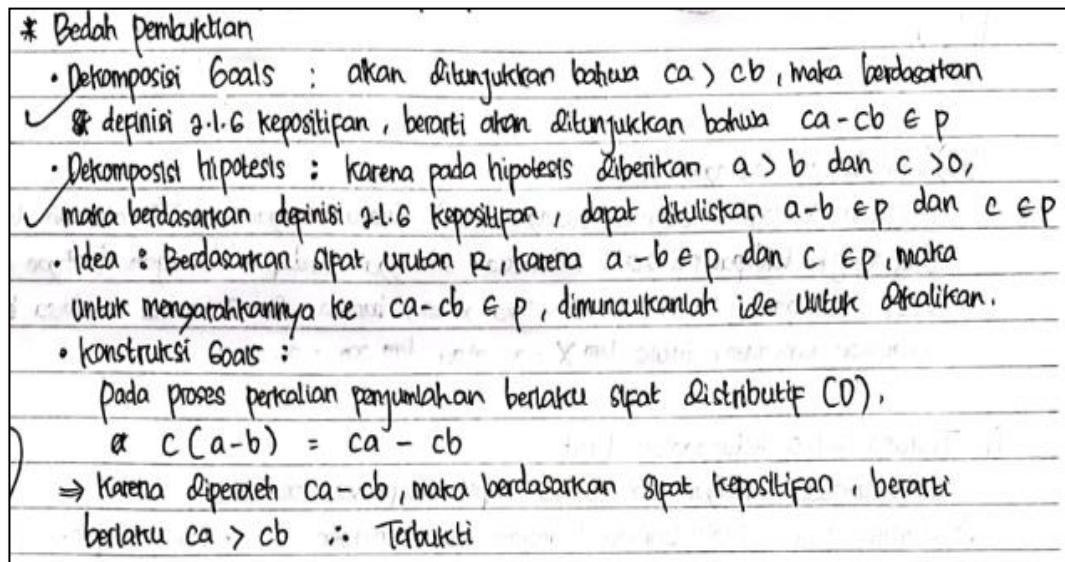 * Bedah pembuktian
• Dekomposisi Goals : akan ditunjukkan bahwa ca > cb, maka berdasarkan
definisi 2.1.6 kepositifan, berarti akan ditunjukkan bahwa ca - cb ∈ p
• Dekomposisi hipotesis : karena pada hipotesis diberikan a > b dan c > 0,
maka berdasarkan definisi 2.1.6 kepositifan, dapat dituliskan a-b ∈ p dan c ∈ p
Idea : Berdasarkan sifat urutan R, karena a - b ∈ p dan c ∈ p, maka
untuk mengarahkannya ke ca-cb ∈ p, dimunculkanlah ide untuk dikalikan.
• konstruksi Goals :
pada proses perkalian penjumlahan berlaku sifat distributif (D).
c (a-b) = ca - cb
⇒ karena diperoleh ca-cb, maka berdasarkan sifat kepositifan, berarti
berlaku ca > cb ∴ Terbukti